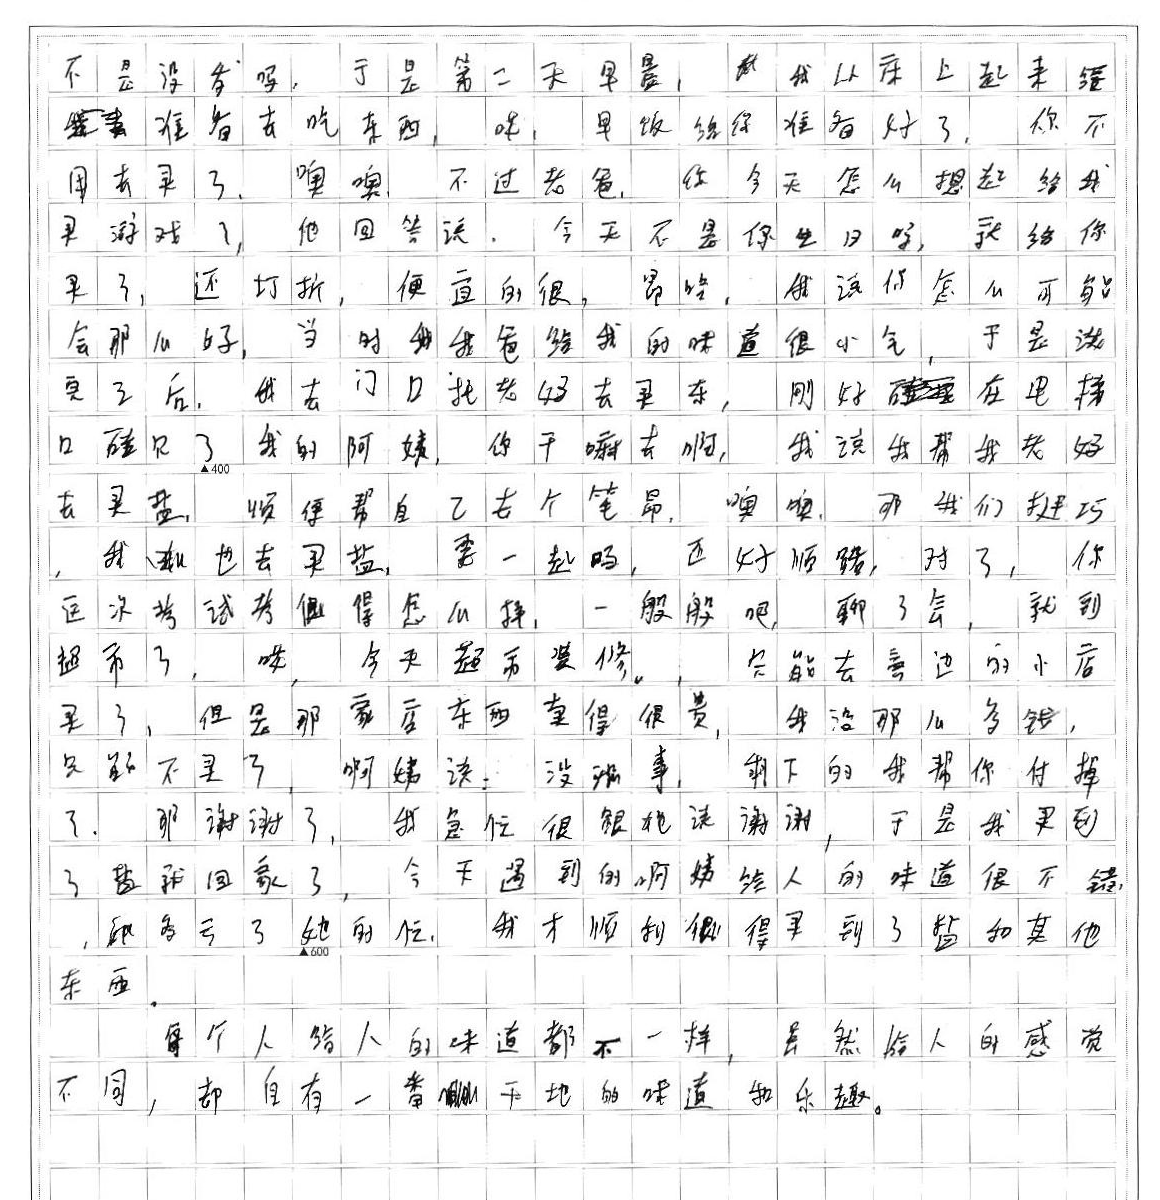 不是没有吗，于是第二天早晨，我从床上起来经
准备去吃东西，咦，早饭给你准备好了，你不
用去买了，噢噢，不过老爸，你今天怎么想起给我
买游戏了，他回答说，今天不是你生日吗，就给你
买了，还打折，便宜的很，昂哈，我说你怎么可能
会那么好，当时我我爸给我的味道很小气，于是谈
完了后，我去门口托老好去买东，刚好在电梯
口碰见了我的阿姨，你干嘛去啊，我说我帮我老好
去买盐，顺便帮自己去个笔昂，噢噢，那我们挺巧
，我也去买盐，要一起吗，还好顺路，对了，你
这次考试考得怎么样，一般般吧，聊了会，就到
超市了，哎，今天超市装修。，只能去旁边的小店
买了，但是那家店东西卖得很贵，我没那么多钱，
只能不买了，啊姨说：没事，剩下的我帮你付掉
了，那谢谢了，我急忙很很地说谢谢，于是我买到
了盐就回家了，今天遇到的啊姨给人的味道很不错
，多亏了她的忙，我才顺利得买到了盐和其他
东西。
每个人给人的味道都不一样，虽然给人的感觉
不同，却自有一番天地的味道和乐趣。
▲400
▲600